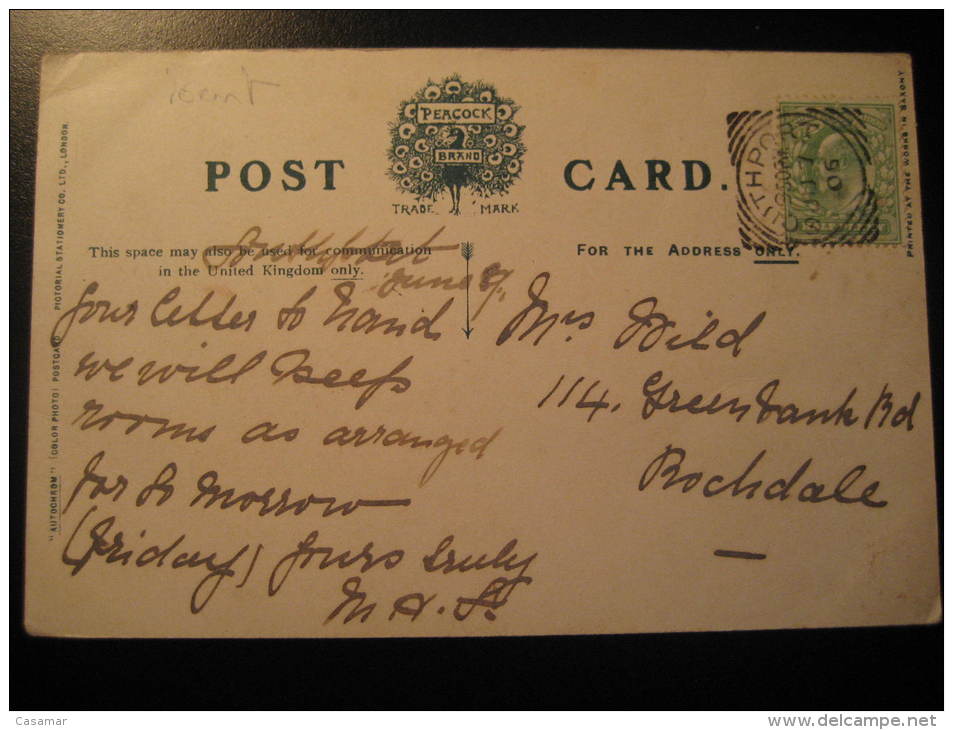 PEACOCK
BRAND
POST CARD.
TRADE MARK
This space may also be used for communication
in the United Kingdom only.
FOR THE ADDRESS ONLY.
Southport
June
Your letter to hand
we will keep
rooms as arranged
for to morrow
(Friday) Yours truly
M H. S.
Mrs Wild
114. Greenbank Rd
Rochdale
"AUTOCHROM" (COLOR PHOTO) POSTCARD PICTORIAL STATIONERY CO., LTD., LONDON.
PRINTED AT THE WORKS IN SAXONY
SOUTHPORT
06
Casamar
www.delcampe.net